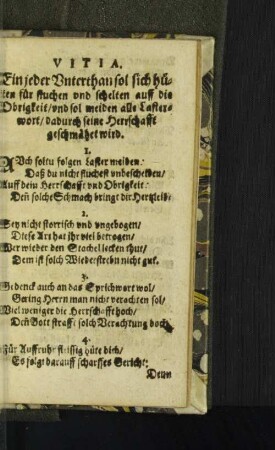 VITIA.
Ein jeder Vnterthan sol sich hü-
ten für fluchen vnd schelten auff die
Obrigkeit/ vnd sol meiden alle Laster-
wort/ dadurch seine Herrschafft
geschmähet wird.
1.
AVch soltu folgen Laster meiden:
Daß du nicht fluchest vnbescheiden/
Auff dein Herrschafft vnd Obrigkeit
Den̄ solche Schmach bringt dir Hertzleid.
2.
Sey nicht störrisch vnd vngebogen/
Diese Art hat ihr viel betrogen/
Wer wieder den Stachel lecken thut/
Dem ist solch Wiederstreben nicht gut.
3.
Gedenck auch an das Sprichwort wol/
Gering Herrn man nicht verachten sol/
Viel weniger die Herrschafft hoch/
Den̄ Gott strafft solch Verachtung doch.
4.
Für Auffruhr fleissig hüte dich/
Es folgt darauff scharffes Gericht:
Denn